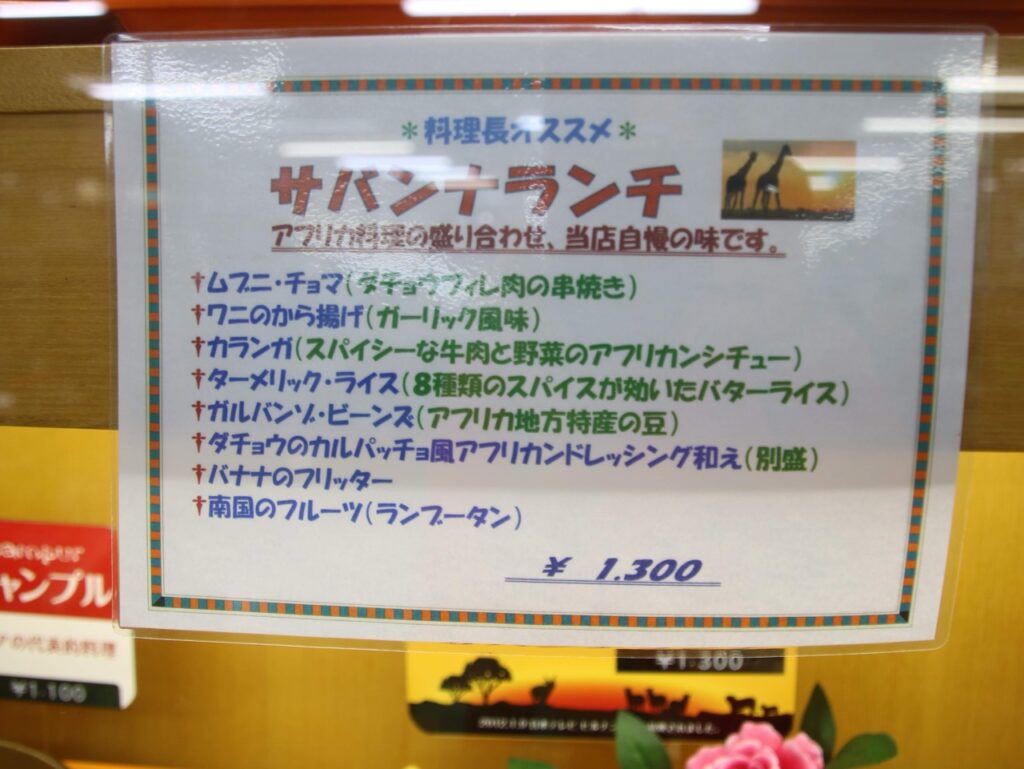 *料理長オススメ*
サバンナランチ
アフリカ料理の盛り合わせ、当店自慢の味です。
†ムブニ・チョマ(ダチョウフィレ肉の串焼き)
†ワニのから揚げ(ガーリック風味)
†カランガ(スパイシーな牛肉と野菜のアフリカンシチュー)
†ターメリック・ライス(8種類のスパイスが効いたバターライス)
†ガルバンゾ・ビーンズ(アフリカ地方特産の豆)
†ダチョウのカルパッチョ風アフリカンドレッシング和え(別盛)
†バナナのフリッター
†南国のフルーツ(ランブータン)
¥ 1.300
ャンプル
の代表的料理
¥1.100
¥1.300